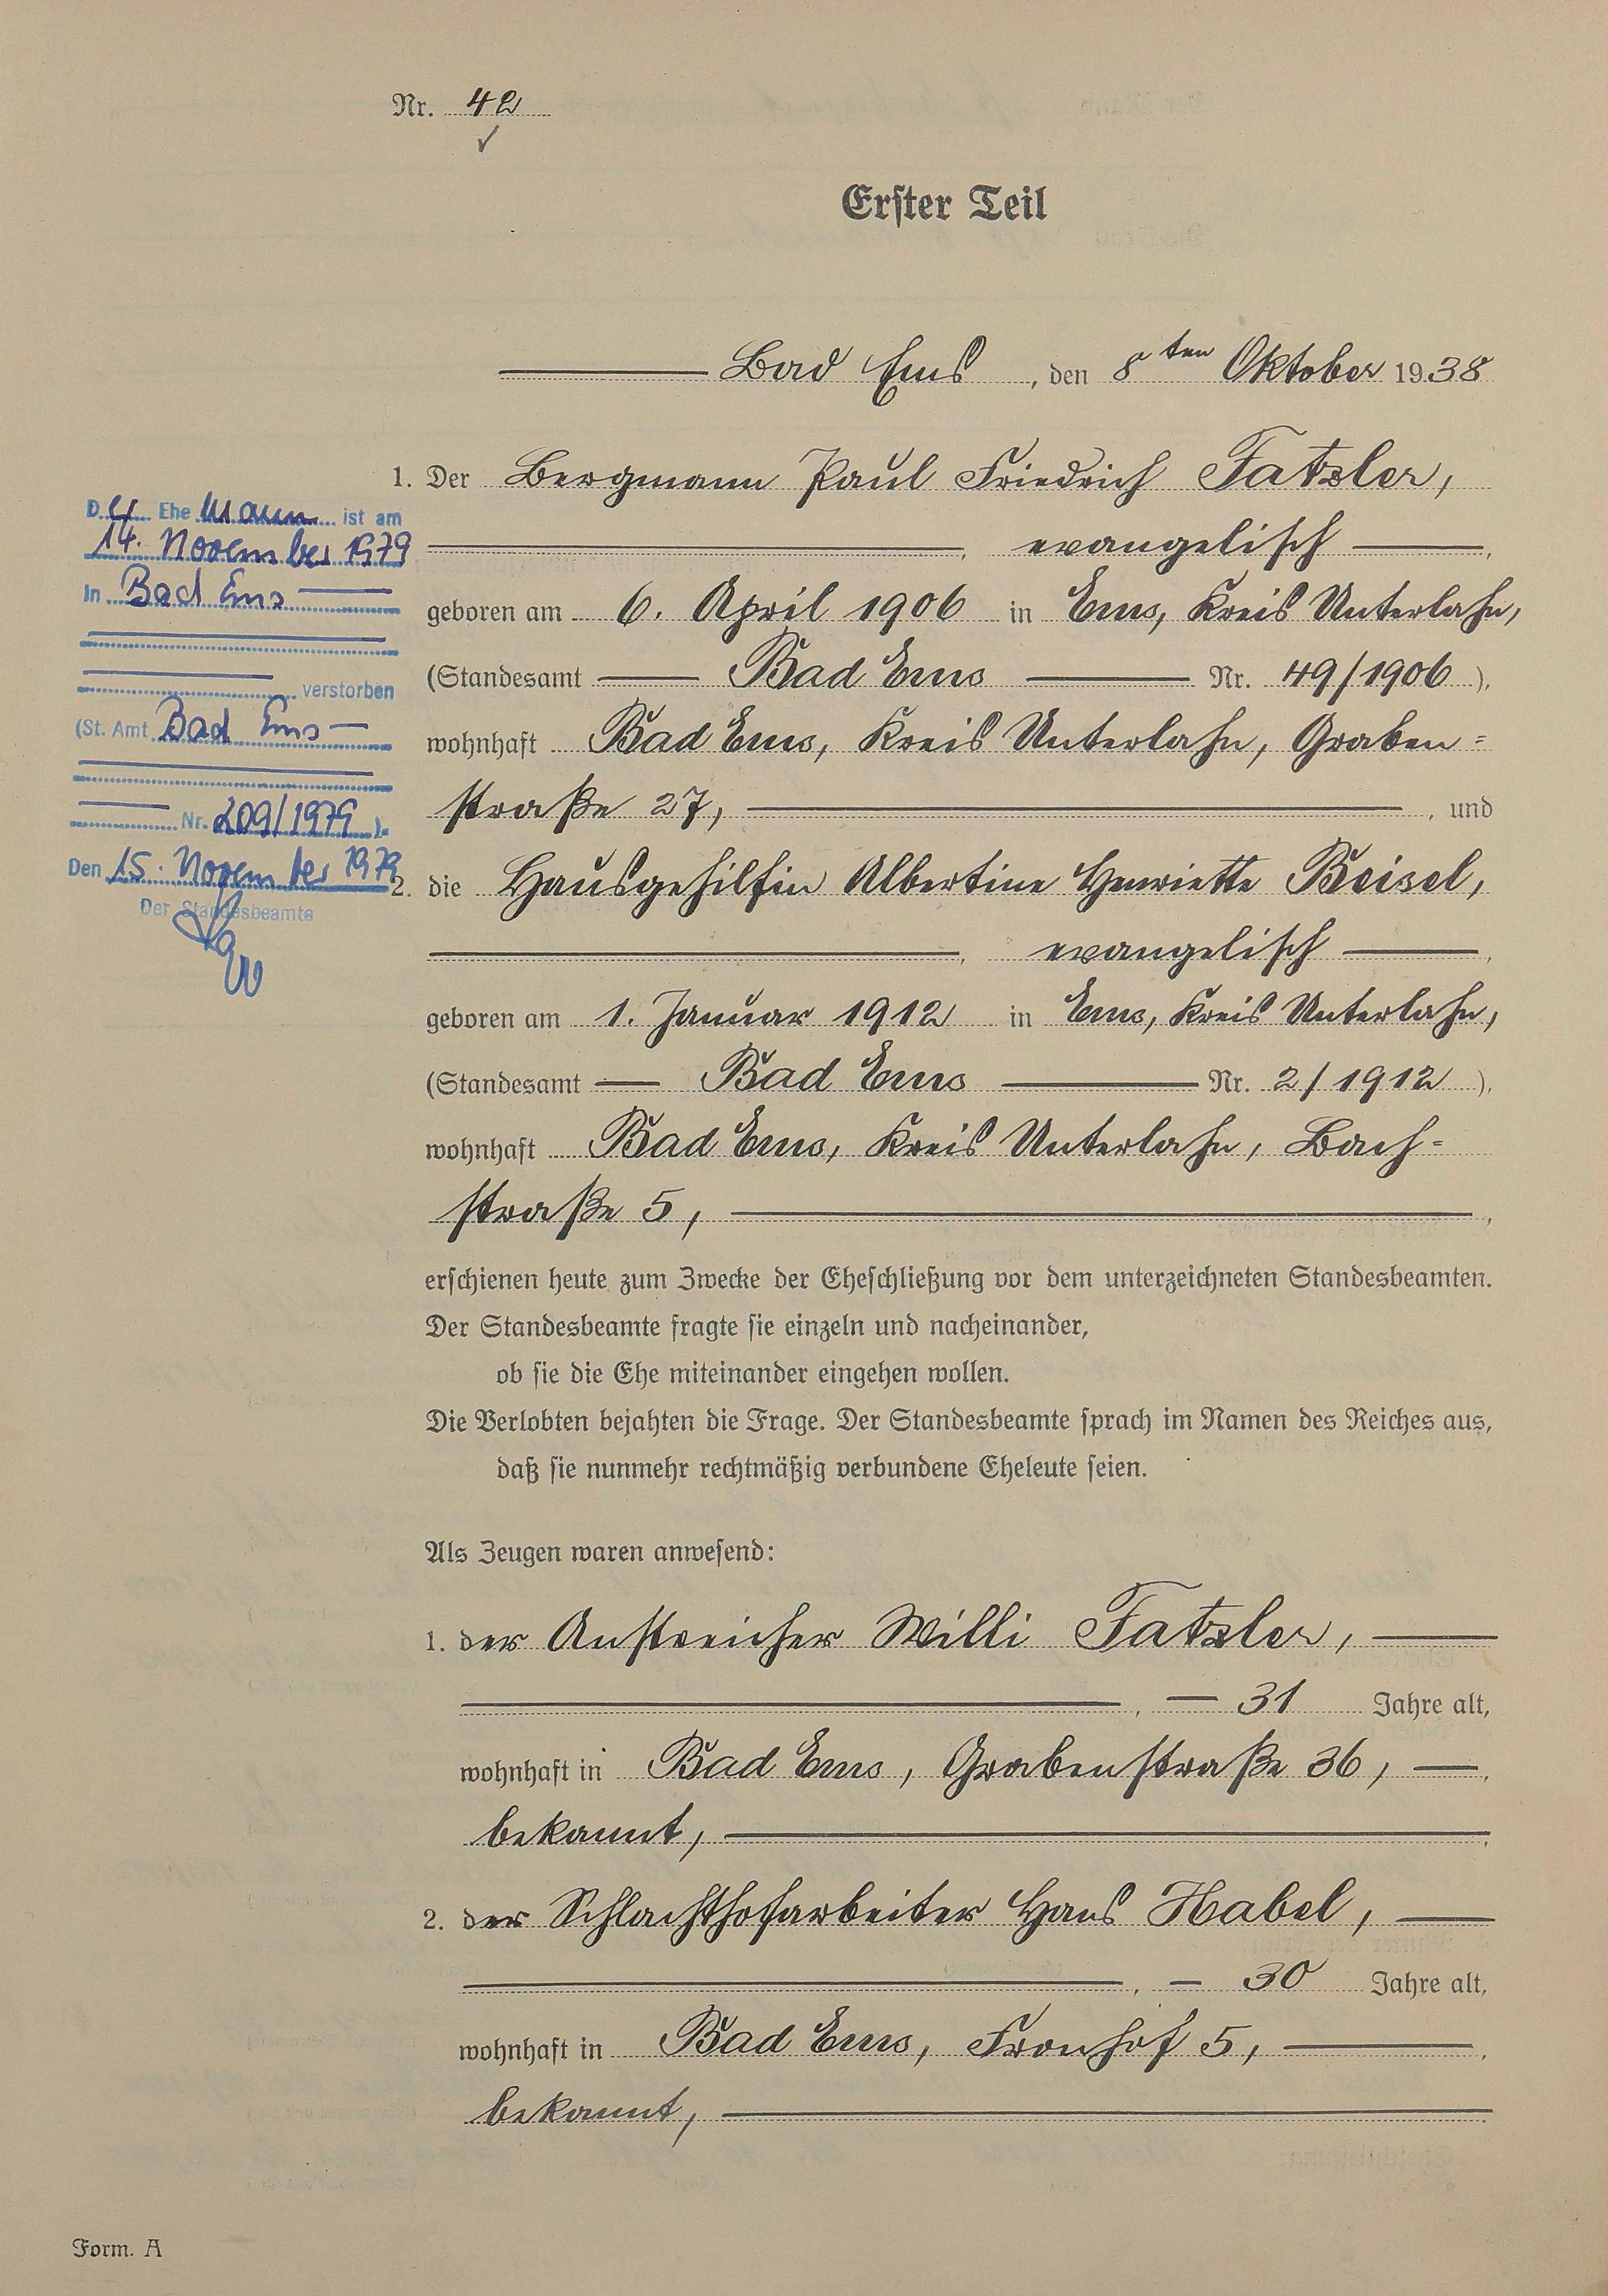 Nr. 42
Erster Teil
Bad Ems, den 8ten Oktober 1938
1. Der Bergmann Paul Friedrich Fatzler,
, evangelisch,
geboren am 6. April 1906 in Ems, Kreis Unterlahn,
(Standesamt Bad Ems Nr. 49/1906),
wohnhaft Bad Ems, Kreis Unterlahn, Graben=
straße 27, , und
2. die Hausgehilfin Albertine Henriette Beisel,
, evangelisch,
geboren am 1. Januar 1912 in Ems, Kreis Unterlahn,
(Standesamt Bad Ems Nr. 2/1912),
wohnhaft Bad Ems, Kreis Unterlahn, Bach=
straße 5, ,
erschienen heute zum Zwecke der Eheschließung vor dem unterzeichneten Standesbeamten.
Der Standesbeamte fragte sie einzeln und nacheinander,
ob sie die Ehe miteinander eingehen wollen.
Die Verlobten bejahten die Frage. Der Standesbeamte sprach im Namen des Reiches aus,
daß sie nunmehr rechtmäßig verbundene Eheleute seien.
Als Zeugen waren anwesend:
1. der Anstreicher Willi Fatzler,
, 31 Jahre alt,
wohnhaft in Bad Ems, Grabenstraße 36, ,
bekannt, .
2. der Schlachthofarbeiter Hans Habel,
, 30 Jahre alt,
wohnhaft in Bad Ems, Fronhof 5, ,
bekannt, .
Der Ehemann ist am
14. November 1979
In Bad Ems
verstorben
(St. Amt Bad Ems
Nr. 209/1979).
Den 15. November 1979
Der Standesbeamte
Form. A